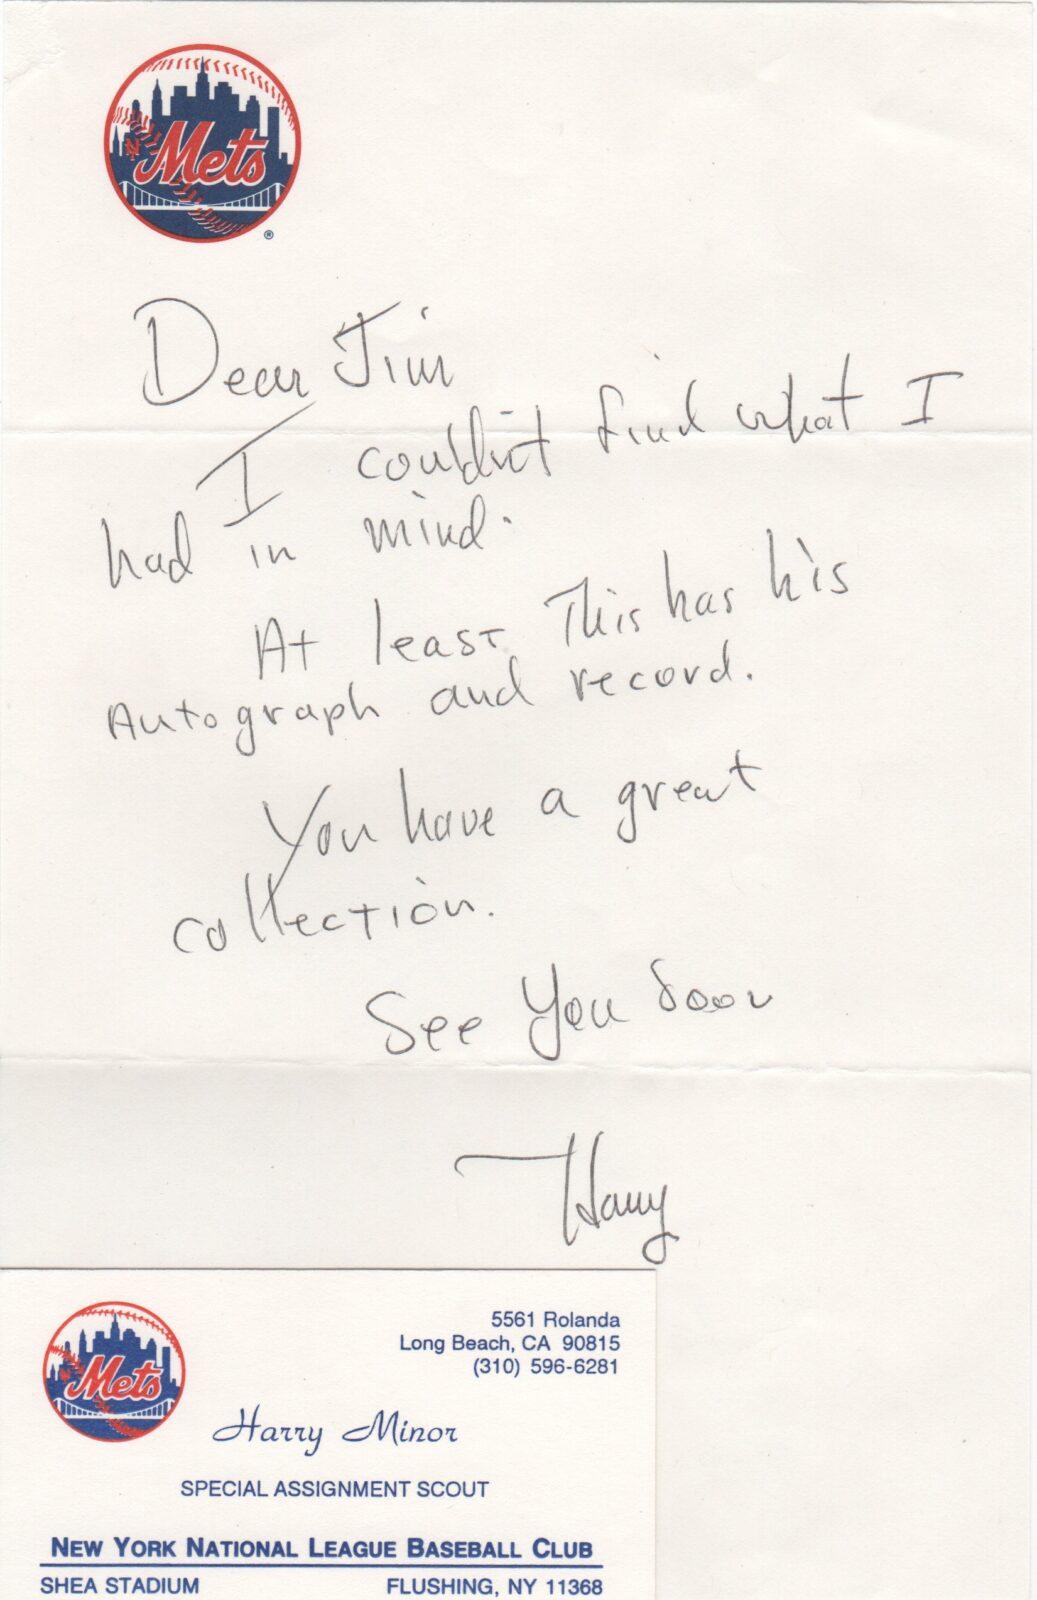 NY
Mets
®
Dear Jim
I couldn't find what I
had in mind.
At least This has his
Autograph and record.
You have a great
collection.
See You Soon
Harry
Mets
5561 Rolanda
Long Beach, CA 90815
(310) 596-6281
Harry Minor
SPECIAL ASSIGNMENT SCOUT
NEW YORK NATIONAL LEAGUE BASEBALL CLUB
SHEA STADIUM FLUSHING, NY 11368